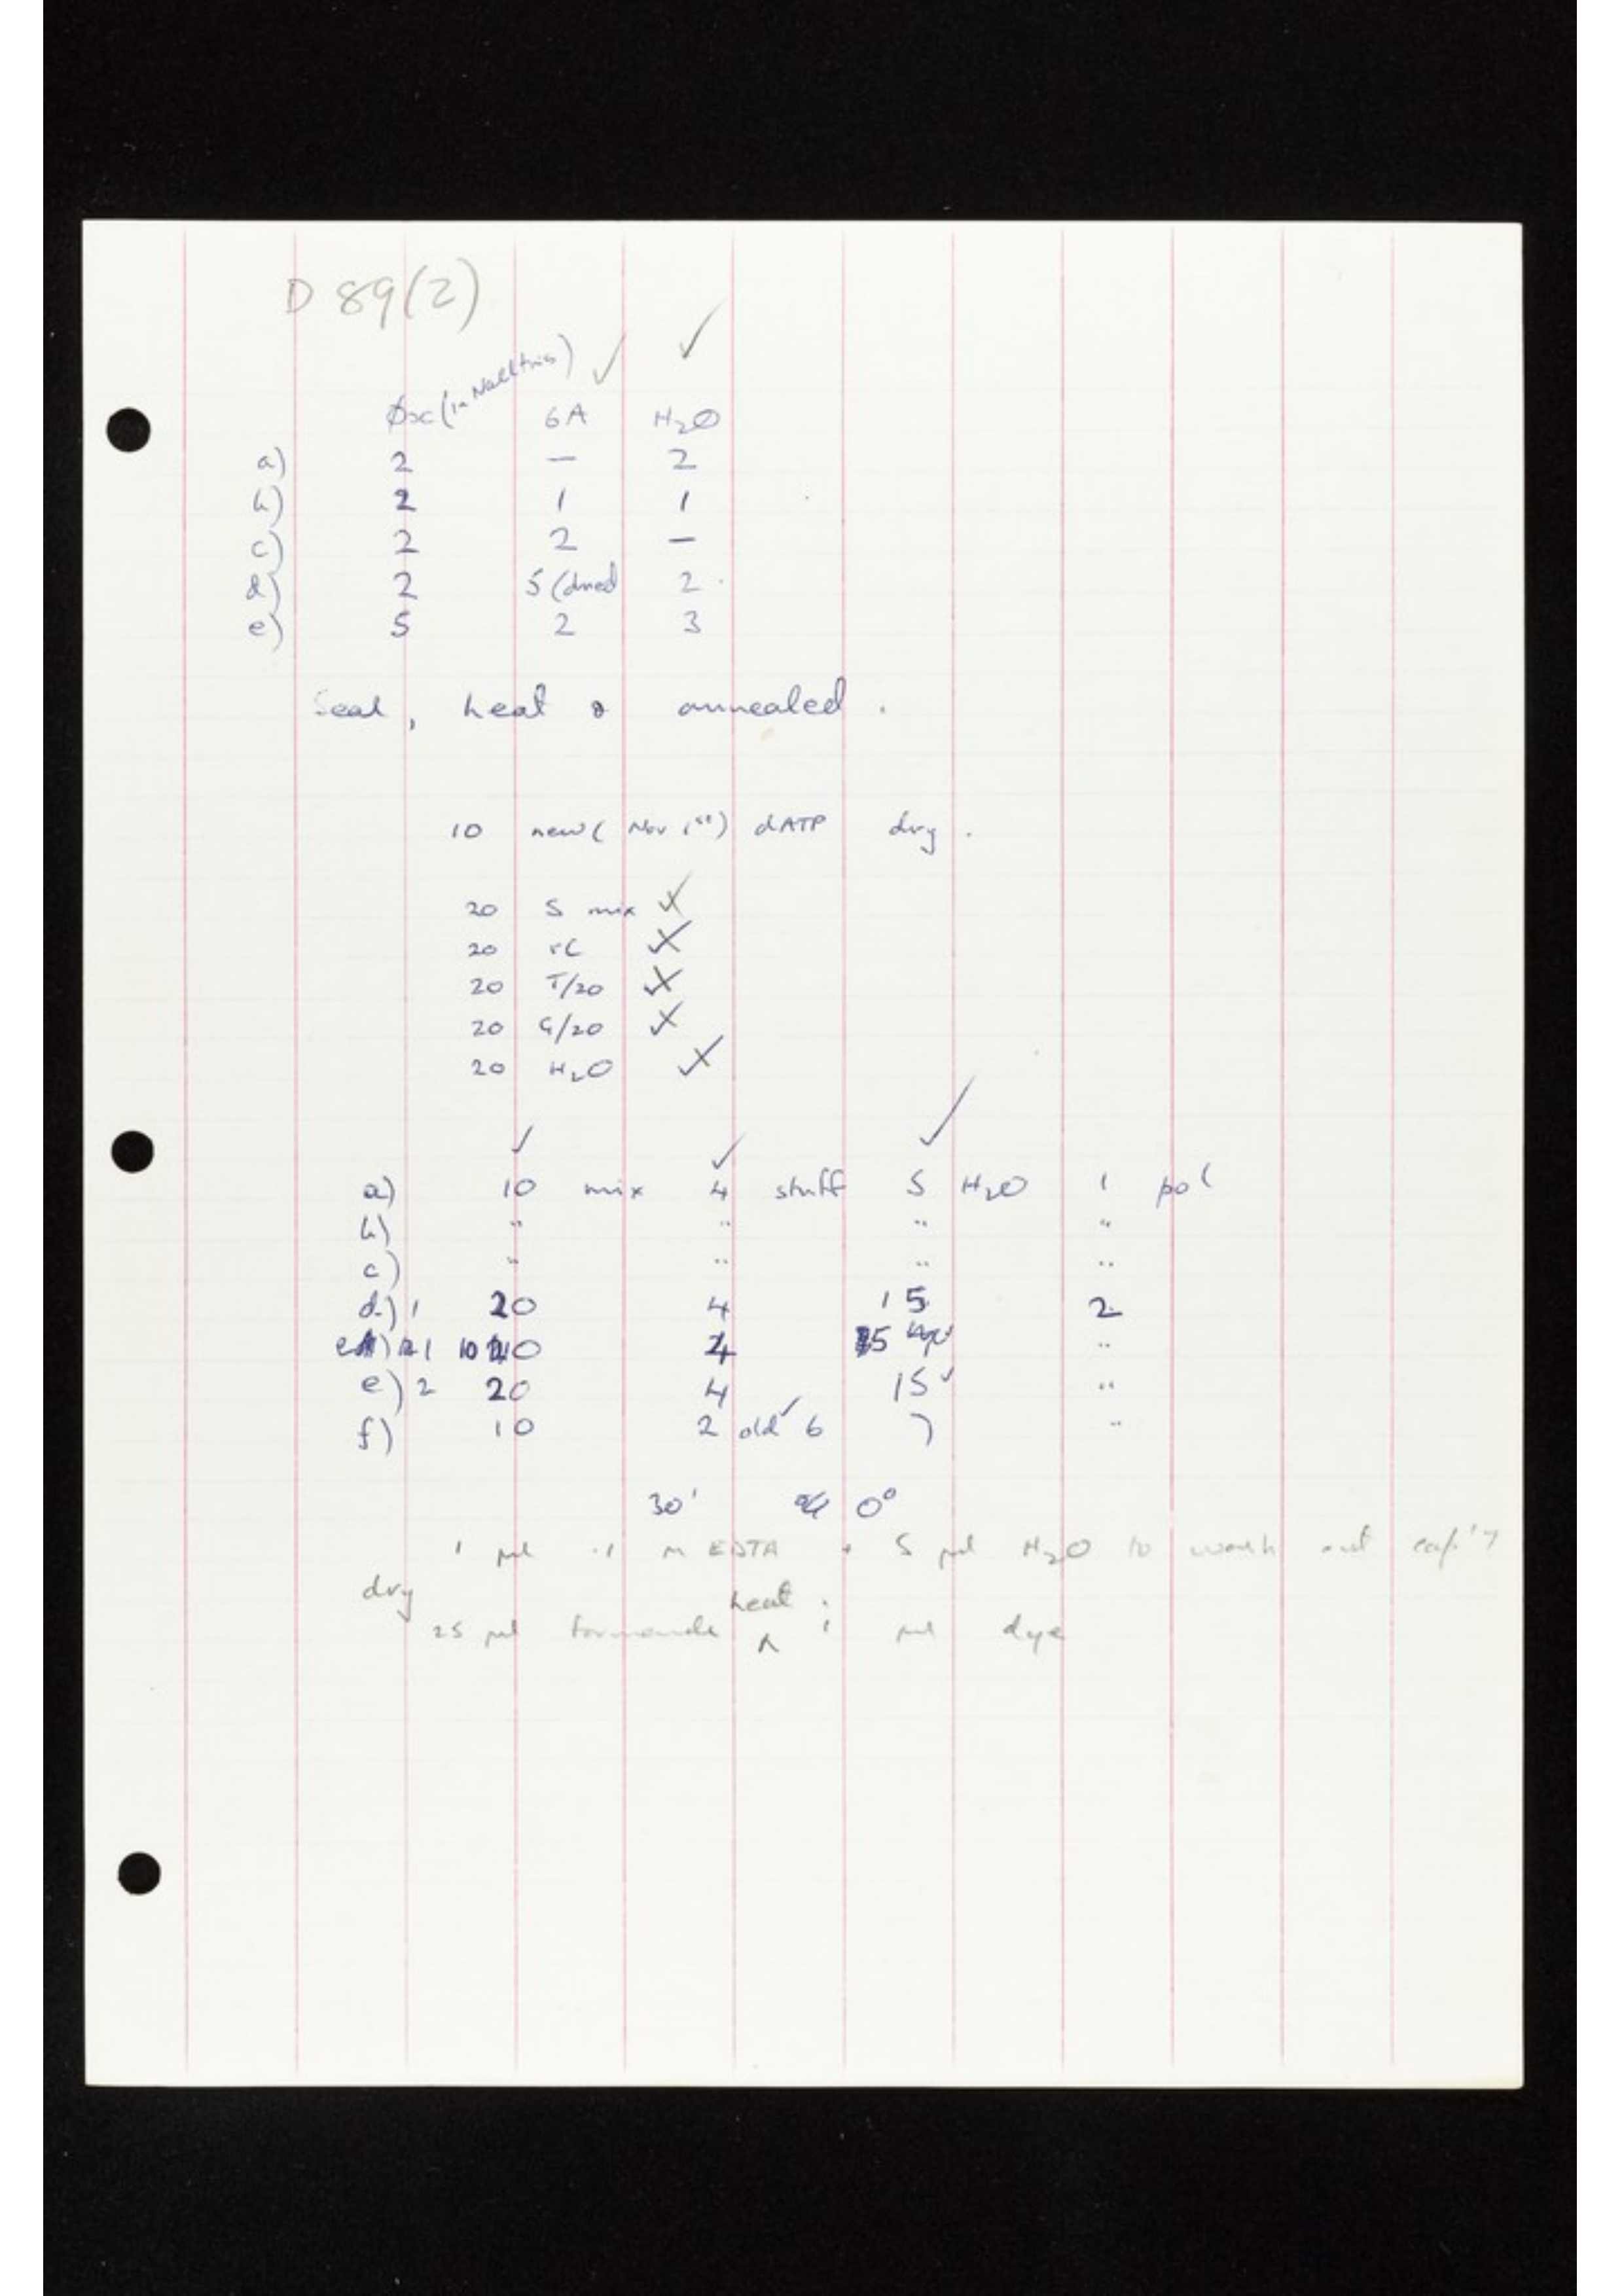 D 89(2)
Øx (in NaCl tris) ✓ 6A ✓ H2O
a) 2 — 2
b) 2 1 1
c) 2 2 —
d) 2 5 (dried 2
e) 5 2 3
Seal, heat & annealed.
10 new (Nov 1st) dATP dry.
20 S mix
20 rC
20 T/20
20 G/20
20 H2O
a) 10 mix 4 stuff 5 H2O 1 pol
b) " " " "
c) " " " "
d) 1 20 4 15 2
e 1 20 4 "
e) 2 20 4 15 "
f) 10 2 old 6 7 "
30' at 0°
1 µl .1 M EDTA + 5 µl H2O to wash out
dry
25 µl formamide heat 1 µl dye